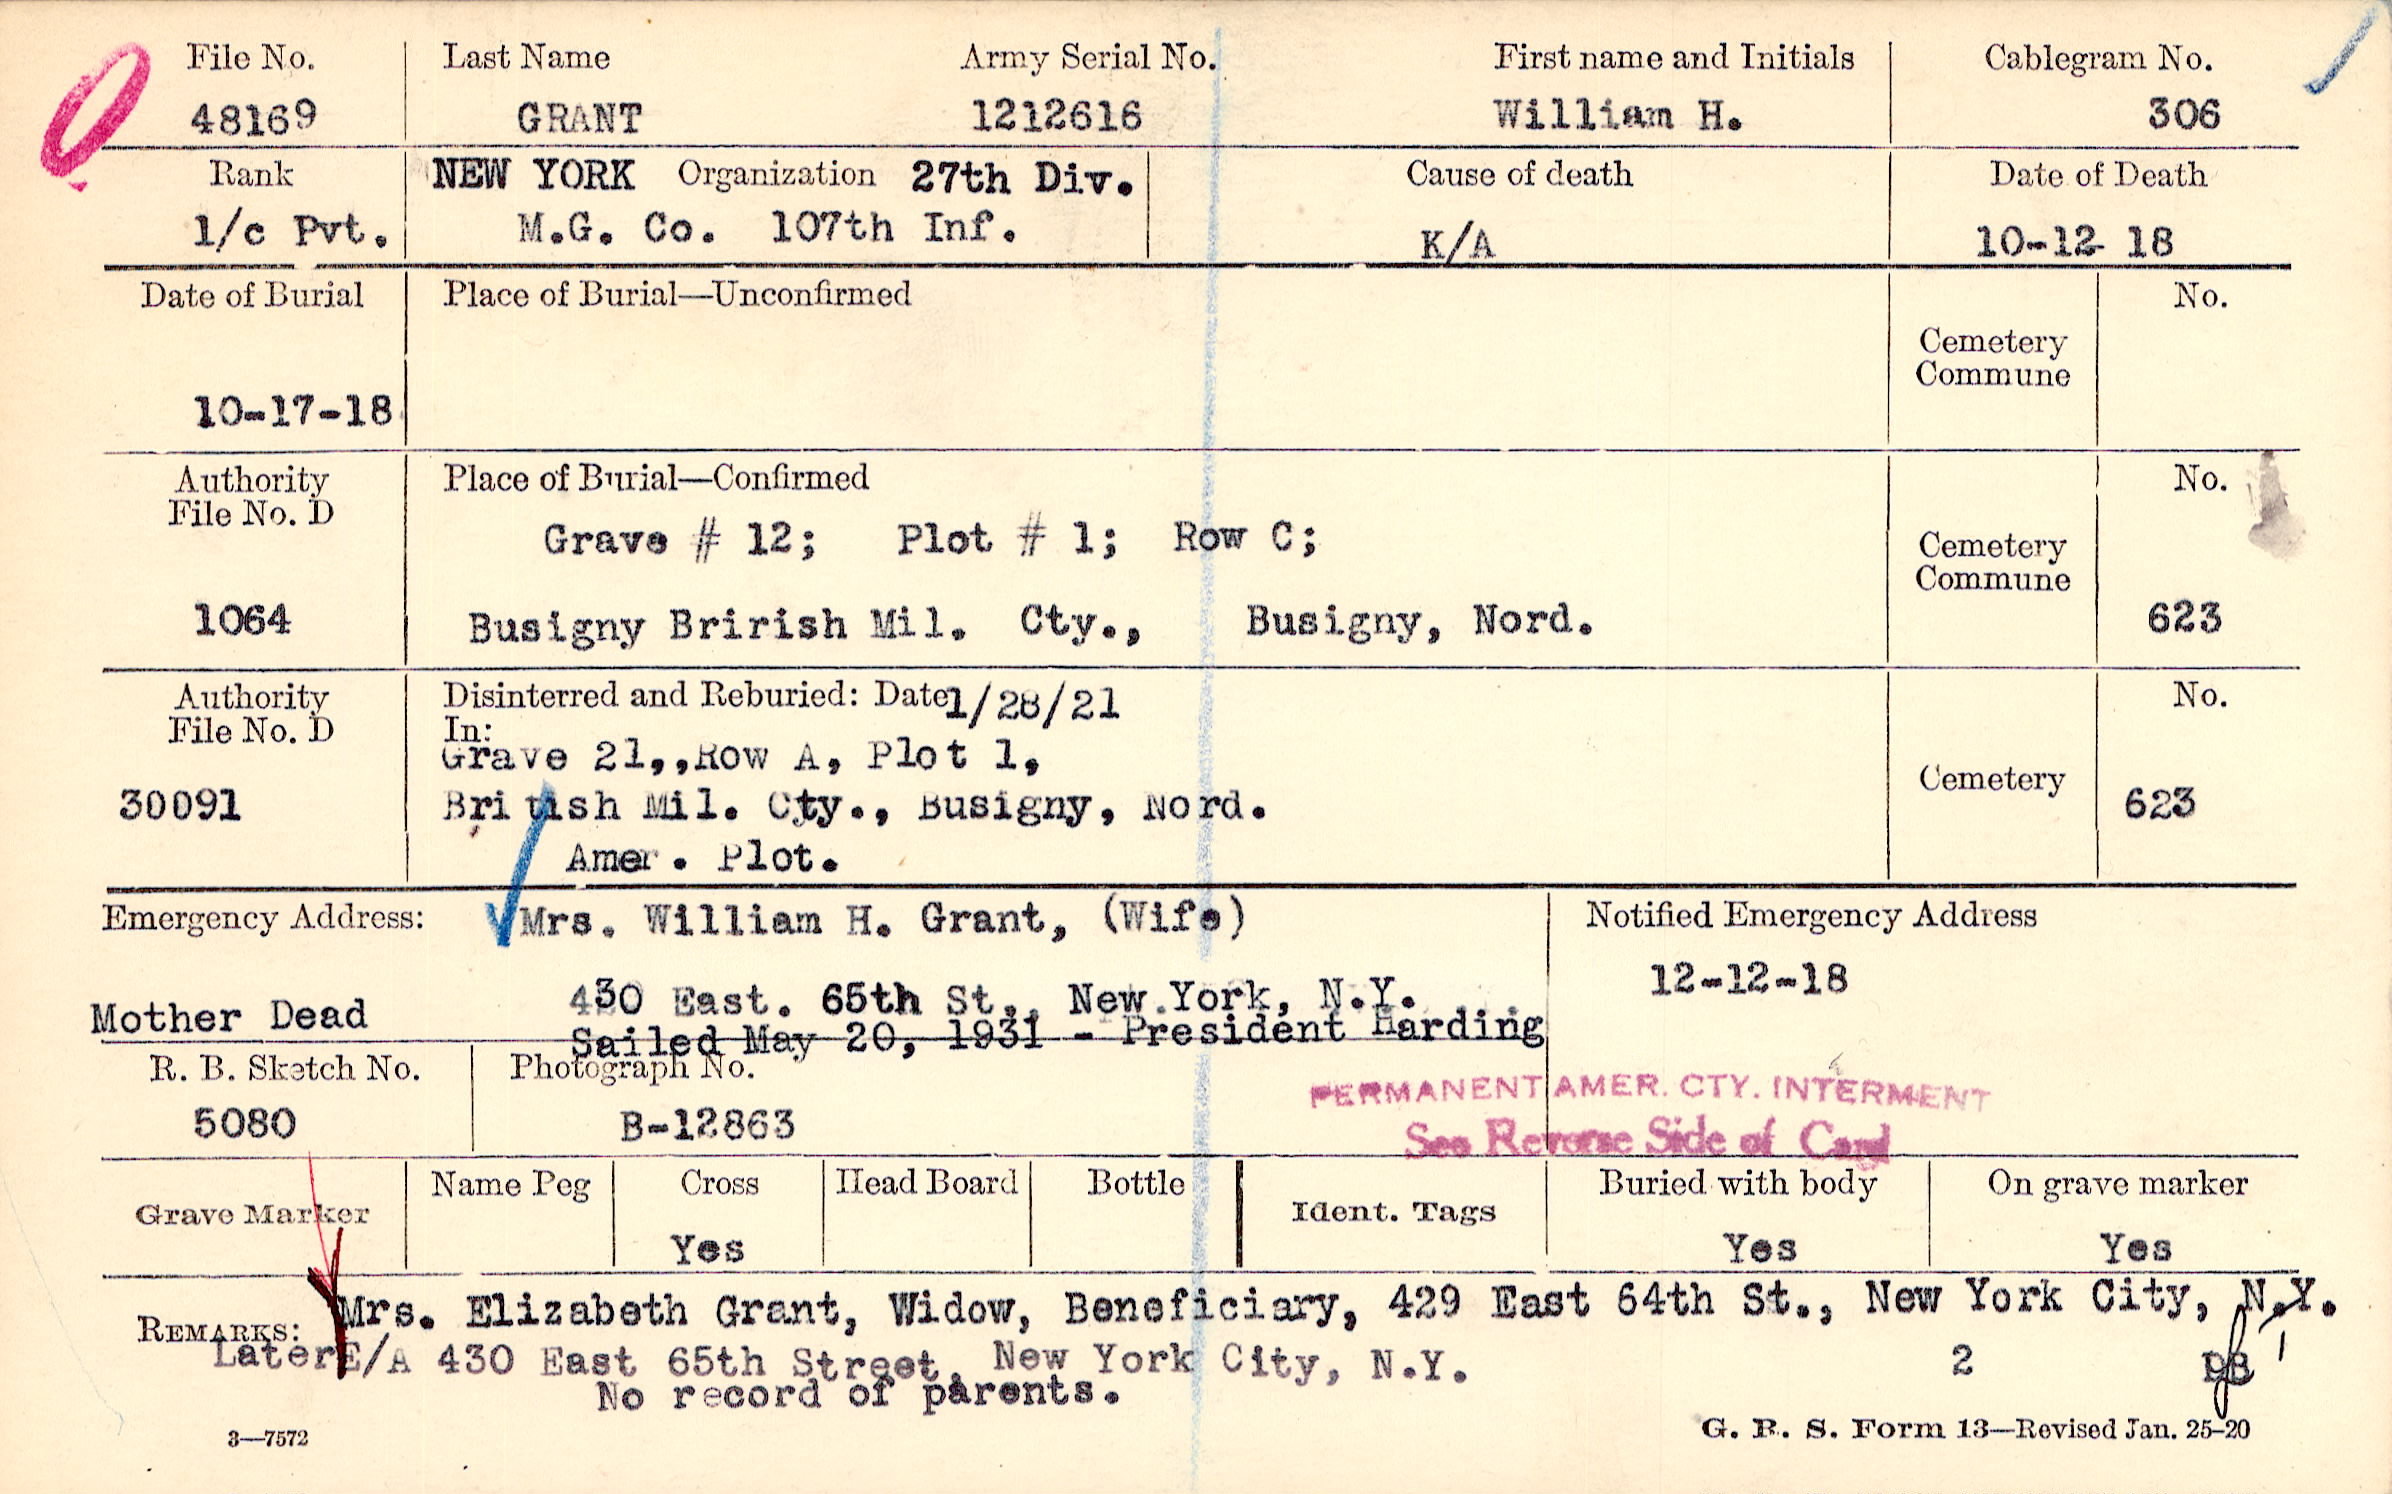 File No. Last Name Army Serial No. First name and Initials Cablegram No.
48169 GRANT 1212616 William H. 306
Rank NEW YORK Organization 27th Div. Cause of death Date of Death
1/c Pvt. M.G. Co. 107th Inf. K/A 10-12- 18
Date of Burial Place of Burial—Unconfirmed No.
Cemetery
Commune
10-17-18
Authority Place of Burial—Confirmed No.
File No. D
Grave # 12; Plot # 1; Row C;
Cemetery
Commune
1064 Busigny Brirish Mil. Cty., Busigny, Nord. 623
Authority Disinterred and Reburied: Date 1/28/21 No.
File No. D In:
Grave 21,,Row A, Plot 1,
Cemetery
30091 British Mil. Cty., Busigny, Nord. 623
Amer. Plot.
Emergency Address: Mrs. William H. Grant, (Wife) Notified Emergency Address
12-12-18
430 East. 65th St., New York, N.Y.
Mother Dead
Sailed May 20, 1931 - President Harding
R. B. Sketch No. Photograph No.
PERMANENT AMER. CTY. INTERMENT
5080 B-12863
See Reverse Side of Card
Grave Marker Name Peg Cross Head Board Bottle Ident. Tags Buried with body On grave marker
Yes Yes Yes
REMARKS: Mrs. Elizabeth Grant, Widow, Beneficiary, 429 East 64th St., New York City, N.Y.
Later E/A 430 East 65th Street, New York City, N.Y. 2
No record of parents.
3—7572 G. R. S. Form 13—Revised Jan. 25-20